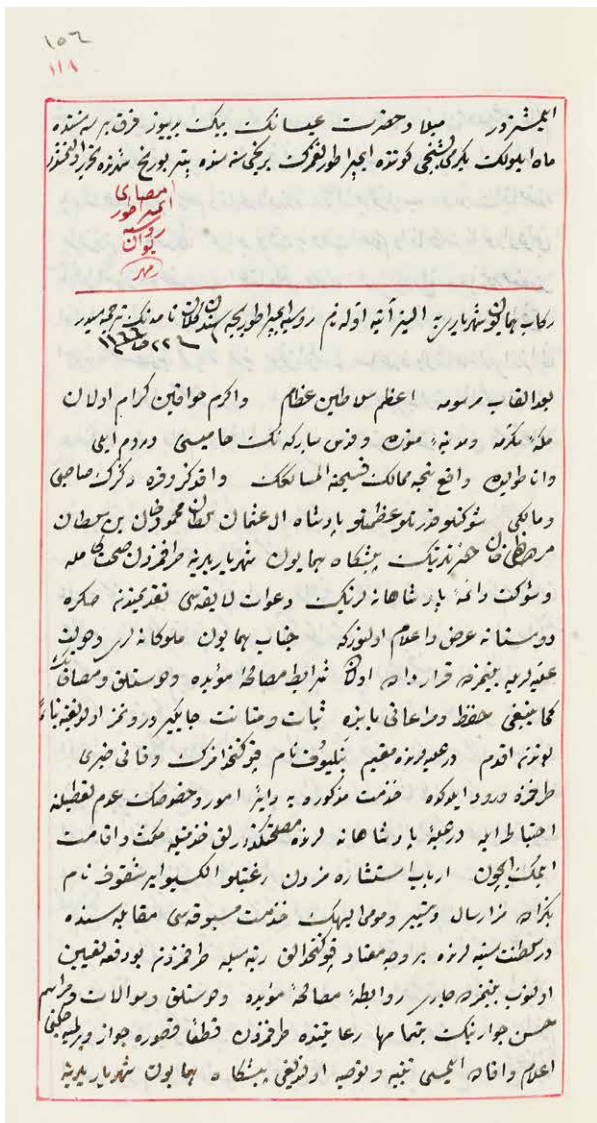 ١٥٦
١١٨
ایلمشزدر میلاد حضرت عیسانك بیك یدییوز قرق بر سنه‌سنده
ماه ایلولك یكرمی كوننده ایمپراطورلغمزك برنجی سنه‌سنده پتربورغ شهرنده تحریر اولنمشدر
امضای
ایمپراطور
روسیه
یوان
مهر
ركاب همایون شهریاری‌یه روسیه ایمپراطوریچه‌سندن كلان نامه‌نك ترجمه‌سیدر
بعد القاب مرسومه اعظم سلاطین عظام واكرم خواقین كرام اولان
مكهٔ مكرمه ومدینهٔ منوره وقدس مباركه‌نك حامیسی وروم ایلی
واناطولیده واقع نیجه ممالك فسیحة المسالكك واقدكز وقره دكزك صاحبی
ومالكی شوكتلو قدرتلو عظمتلو پادشاه ال عثمان سلطان محمود خان بن سلطان
مصطفی خان حضرتلرینك پیشكاه همایون شهریارلرینه طرفمزدن صحت كامله
وشوكت دائمهٔ پادشاهانه‌لرینك دعوات لایقه‌سی تقدیمندن صكره
دوستانه عرض واعلام اولنوركه جناب همایون ملوكانه‌لری ودولت
علیه‌لریله بینمزده قرارداده اولان شرائط مصالحهٔ مؤبده ودوستلق ومصافاتك
كما ینبغی حفظ ومراعاتی مابنده ثبات ومتانت جایكیر درونمز اولدیغنه بناءً
بوندن اقدم درعلیه‌لرنده مقیم نام قپوكتخدامزك وفاتی خبری
طرفمزه ورود ایلدكده خدمت مذكوره‌یه دائر امور وخصوصك عدم تعطیلنه
احتیاط ایله درعلیهٔ پادشاهانه‌لرنده مصلحتكذارلق خدمتیله مكث واقامت
ایتمك ایچون ارباب استشاره‌مزدن رغبتلو الكسیو نام
بكزاده‌مز ارسال وتسییر ومومی الیهك خدمت مسبوقه‌سی مقابله‌سنده
در سلطنت سنیه‌لرنده بر وجه معتاد قپوكتخدالق رتبه‌سیله طرفمزدن بو دفعه تعیین
اولنوب بینمزده جاری روابطهٔ مصالحهٔ مؤبده ودوستلق وموالات ومراسم
حسن جوارینك بتمامها رعایتنده طرفمزدن قطعا قصوره جواز ویرلمیه‌جكنی
اعلام وافاده ایلمسی تنبیه وتوصیه اولندیغی پیشكاه همایون شهریارلرینه